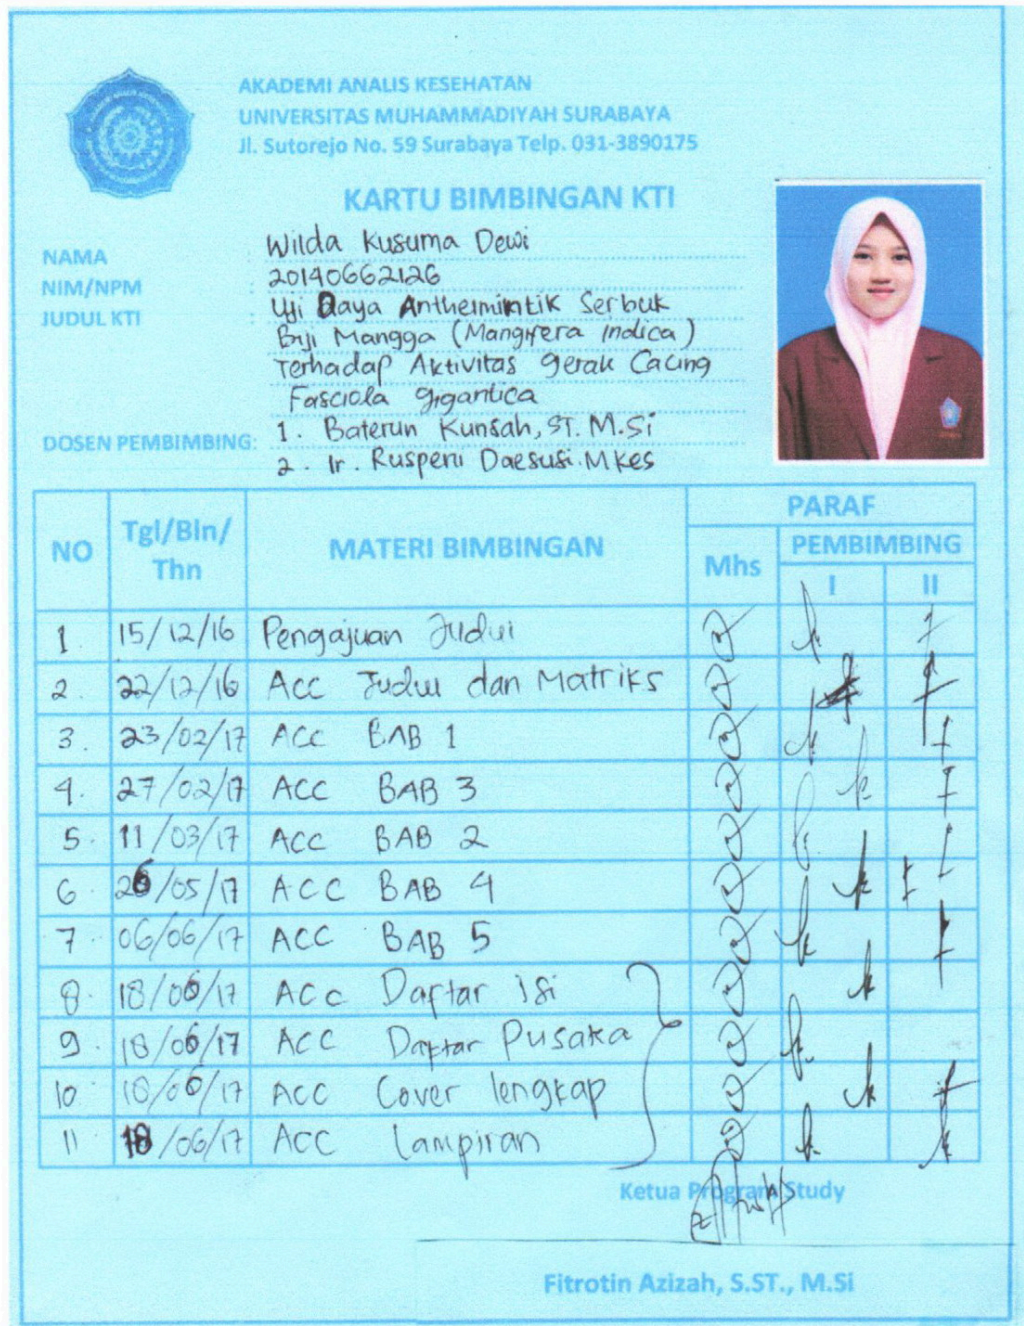 AKADEMI ANALIS KESEHATAN
UNIVERSITAS MUHAMMADIYAH SURABAYA
Jl. Sutorejo No. 59 Surabaya Telp. 031-3890175
KARTU BIMBINGAN KTI
NAMA : Wilda Kusuma Dewi
NIM/NPM : 20140662126
JUDUL KTI : Uji Daya Anthelmintik Serbuk
Biji Mangga (Mangifera Indica)
Terhadap Aktivitas gerak Cacing
Fasciola gigantica
DOSEN PEMBIMBING: 1. Baterun Kunsah, ST. M.Si
2. Ir. Ruspeni Daesusi. MKes
NO Tgl/Bln/Thn MATERI BIMBINGAN PARAF
Mhs PEMBIMBING
I II
1. 15/12/16 Pengajuan Judul
2. 22/12/16 Acc Judul dan Matriks
3. 23/02/17 ACC BAB 1
4. 27/02/17 ACC BAB 3
5. 11/03/17 ACC BAB 2
6. 26/05/17 ACC BAB 4
7. 06/06/17 ACC BAB 5
8. 18/06/17 ACC Daftar isi
9. 18/06/17 ACC Daftar Pusaka
10. 18/06/17 ACC Cover lengkap
11 18/06/17 ACC Lampiran
Ketua Program Study
Fitrotin Azizah, S.ST., M.Si